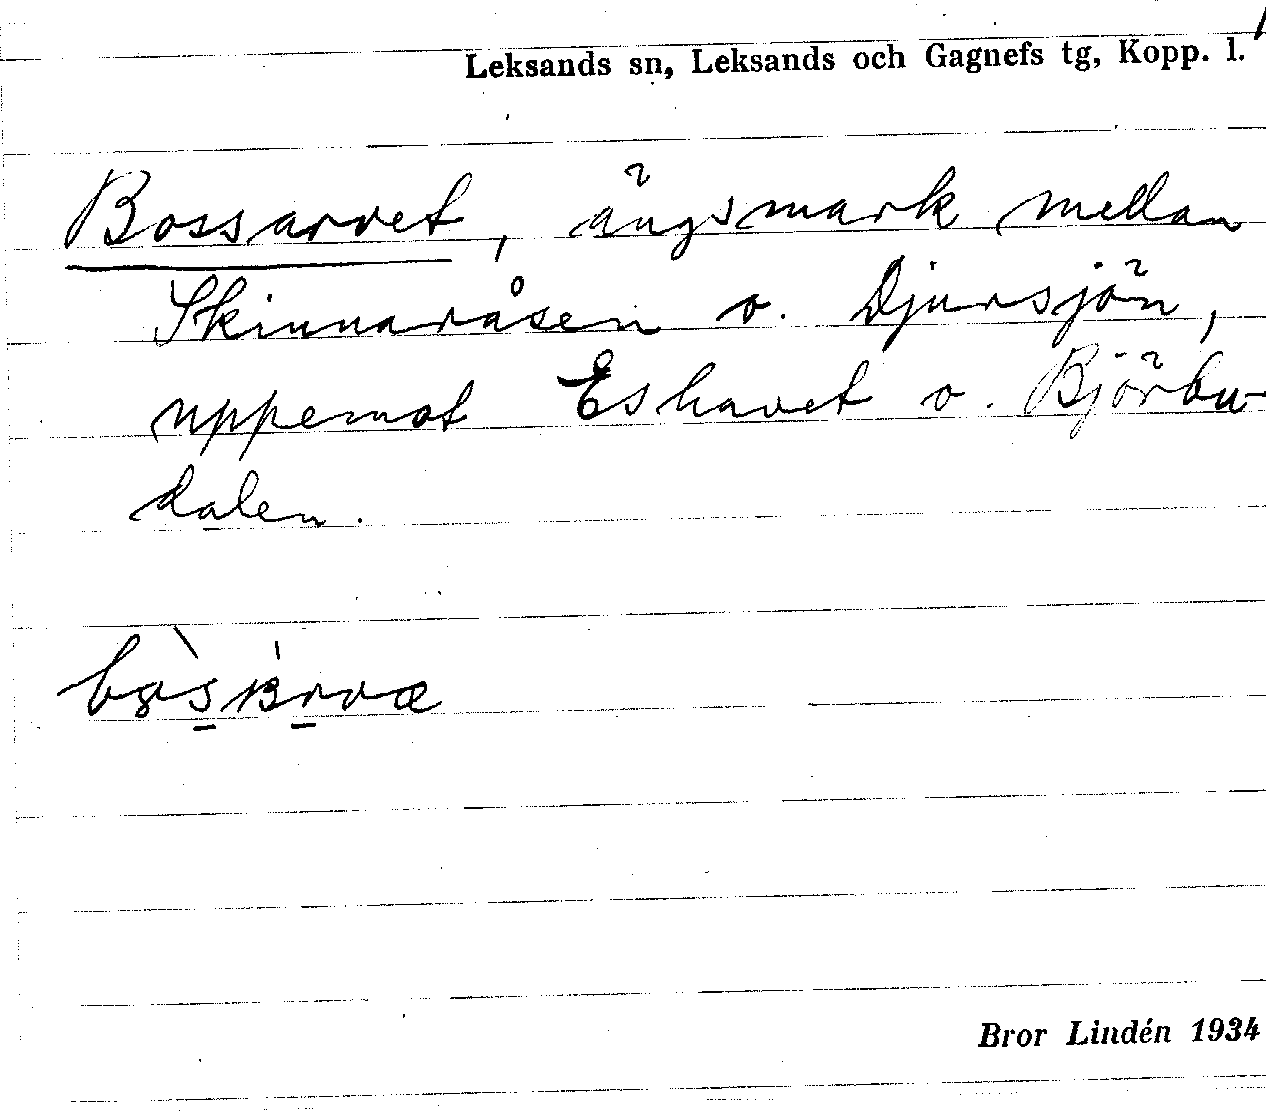 Leksands sn, Leksands och Gagnefs tg, Kopp. l.
Bossarvet, ängsmark mellan
Skinnaråsen o. Djursjön,
uppemot Eshavet o. Björbu-
dalen.
Bror Lindén 1934